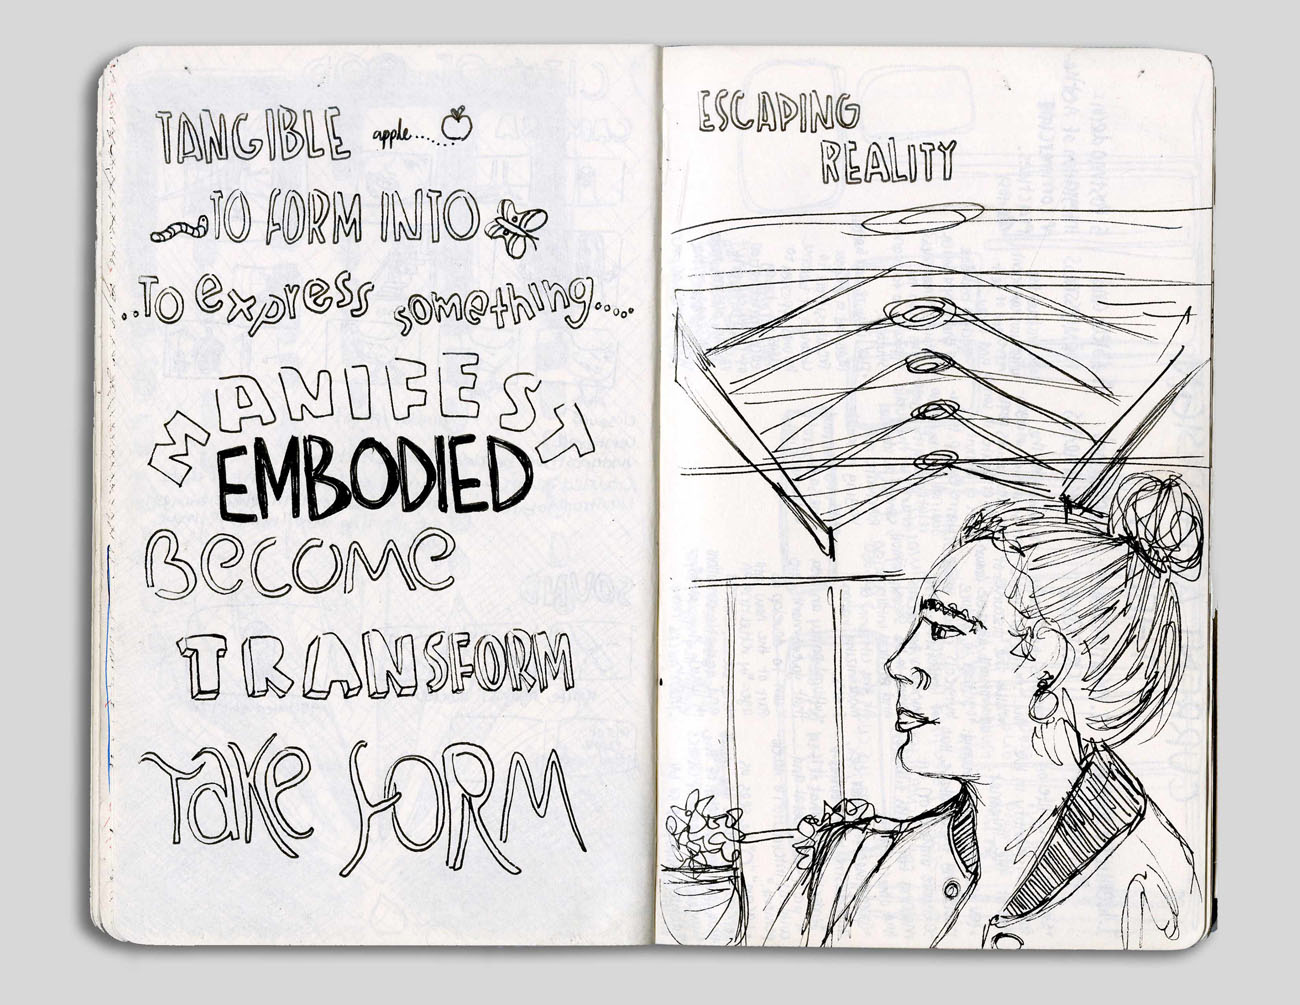 TANGIBLE apple....
TO FORM INTO
..To express something.....
MANIFEST
EMBODIED
BECOME
TRANSFORM
TAKE FORM
ESCAPING
REALITY